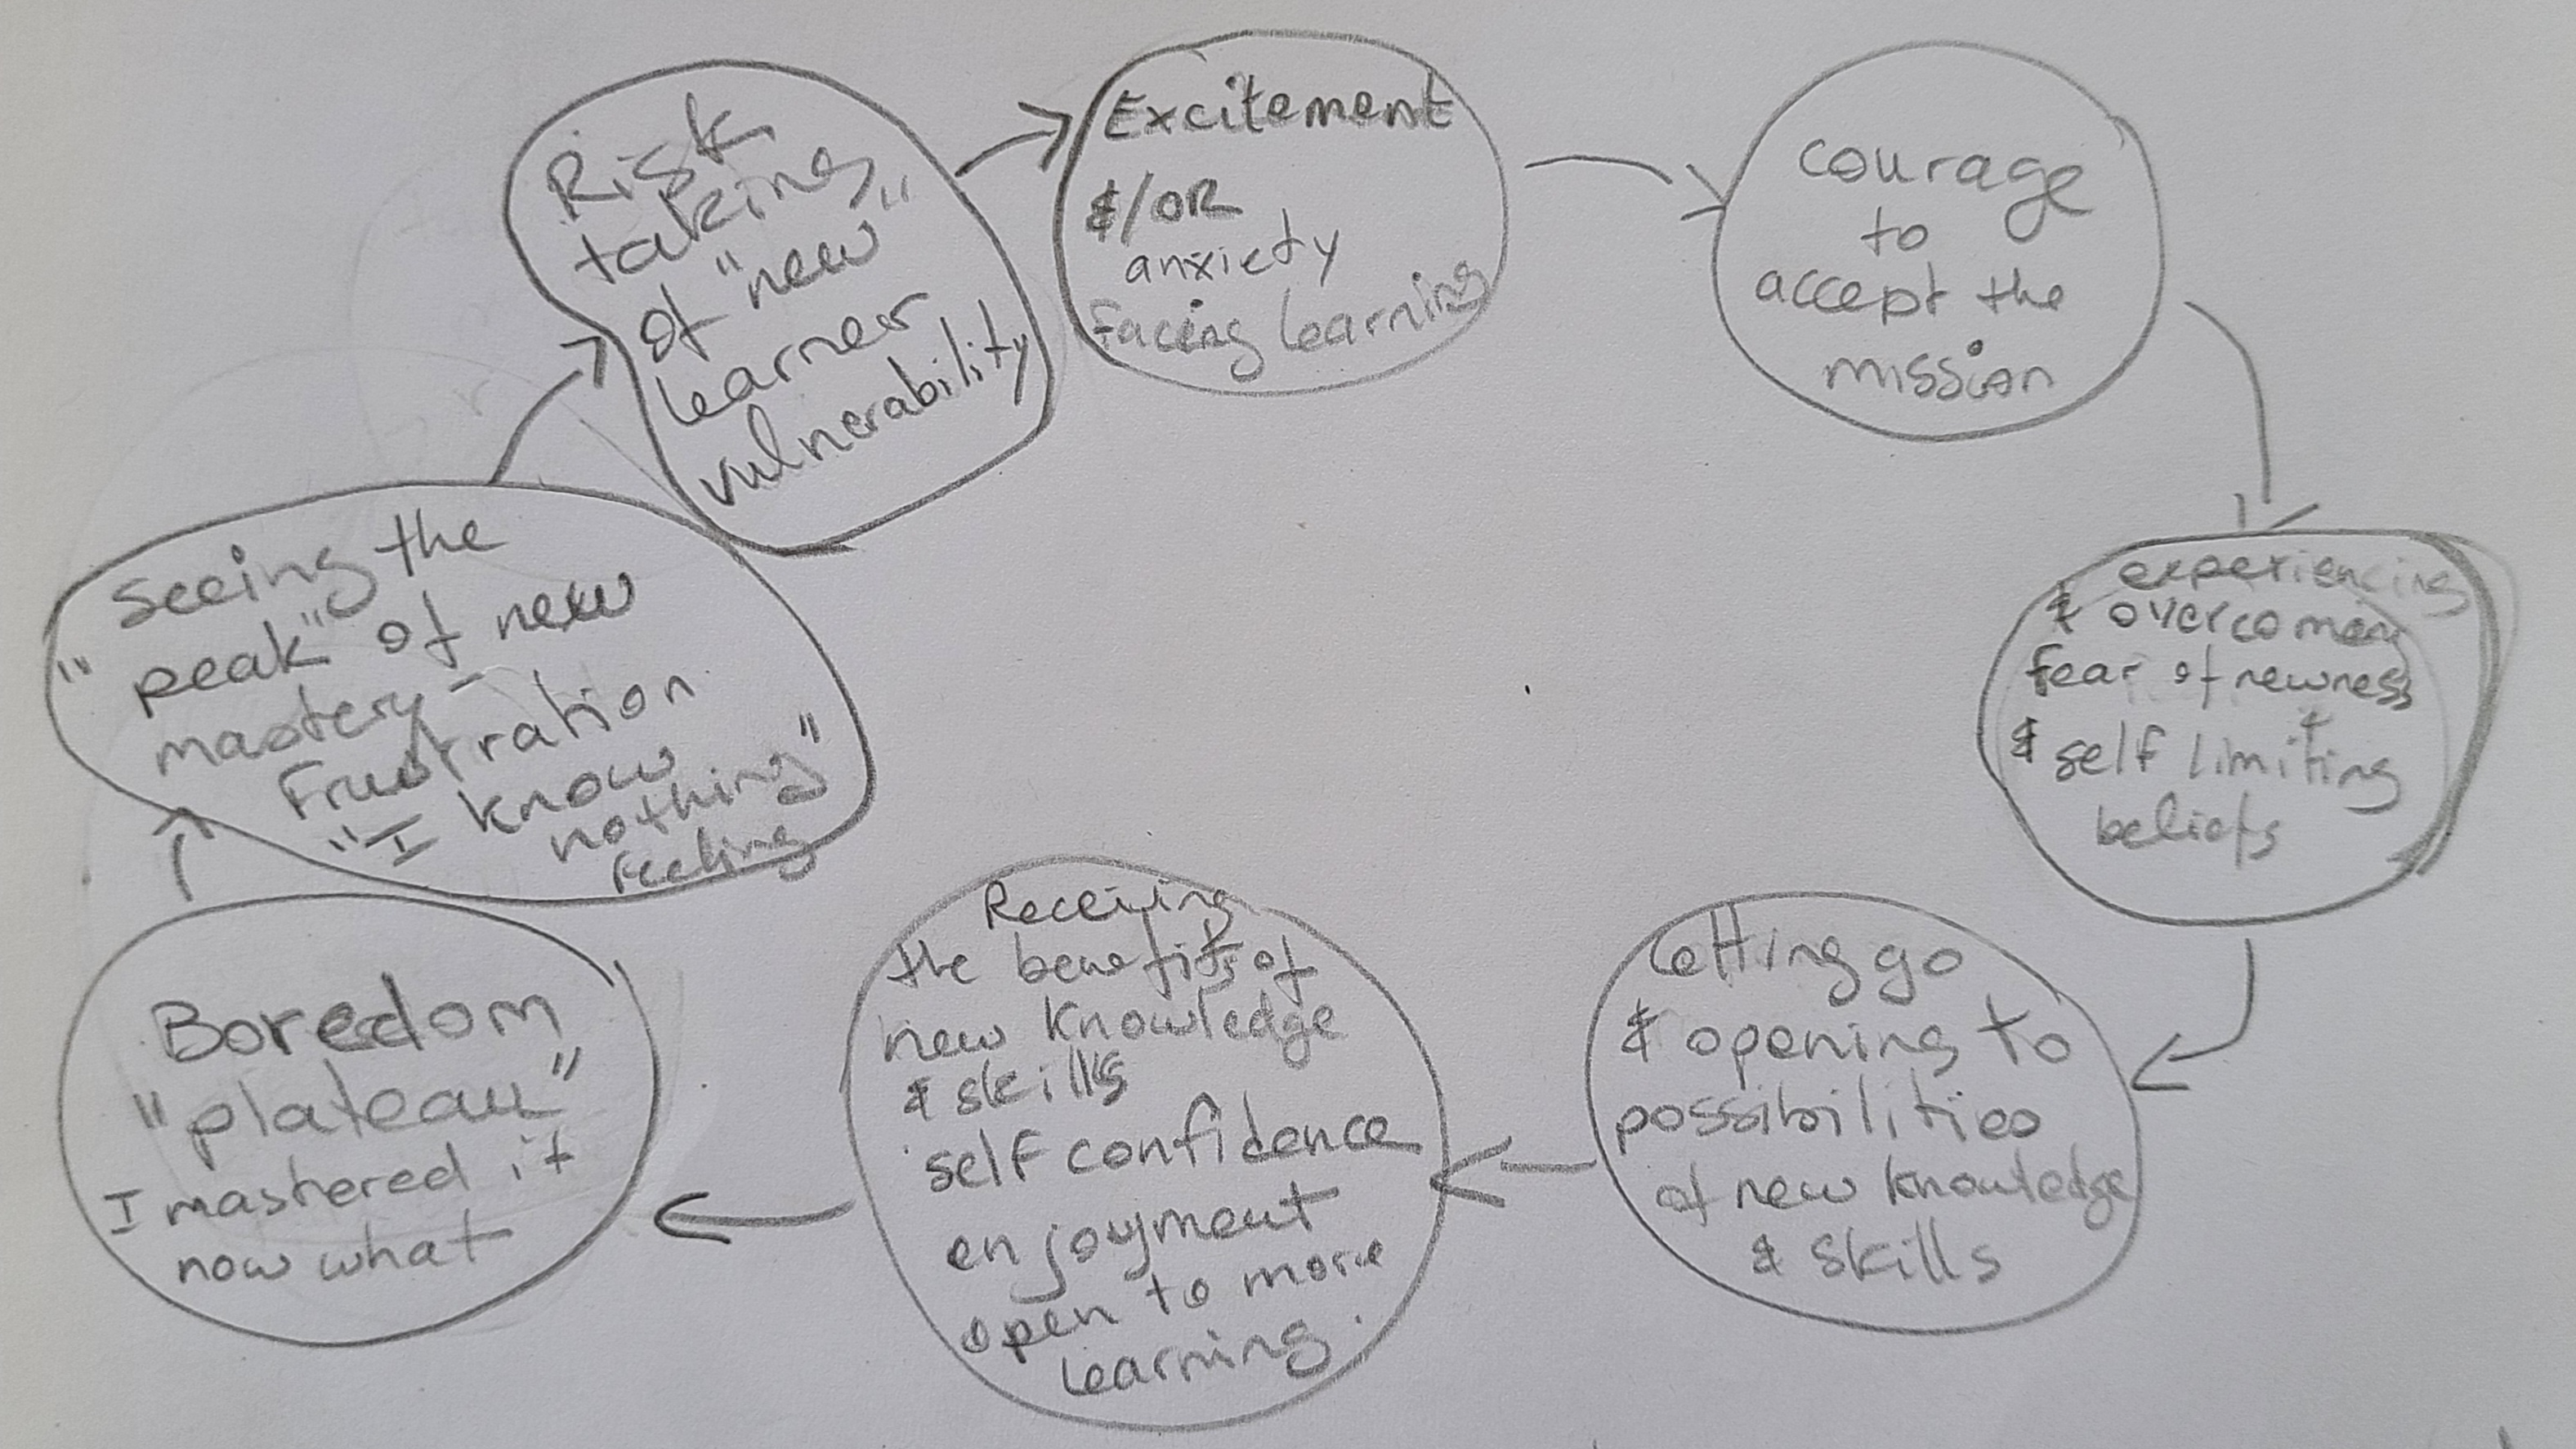 Risk
taking
of "new"
learner
vulnerability
Excitement
&/OR
anxiety
Facing learning
courage
to
accept the
mission
experiencing
& overcoming
Fear of newness
& self limiting
beliefs
Letting go
& opening to
possibilities
of new knowledge
& skills
Receiving
the benefits of
new knowledge
& skills
self confidence
enjoyment
open to more
learning.
Boredom
"plateau"
I mastered it
now what
Seeing the
"peak" of new
mastery -
Frustration
"I know
nothing"
feeling